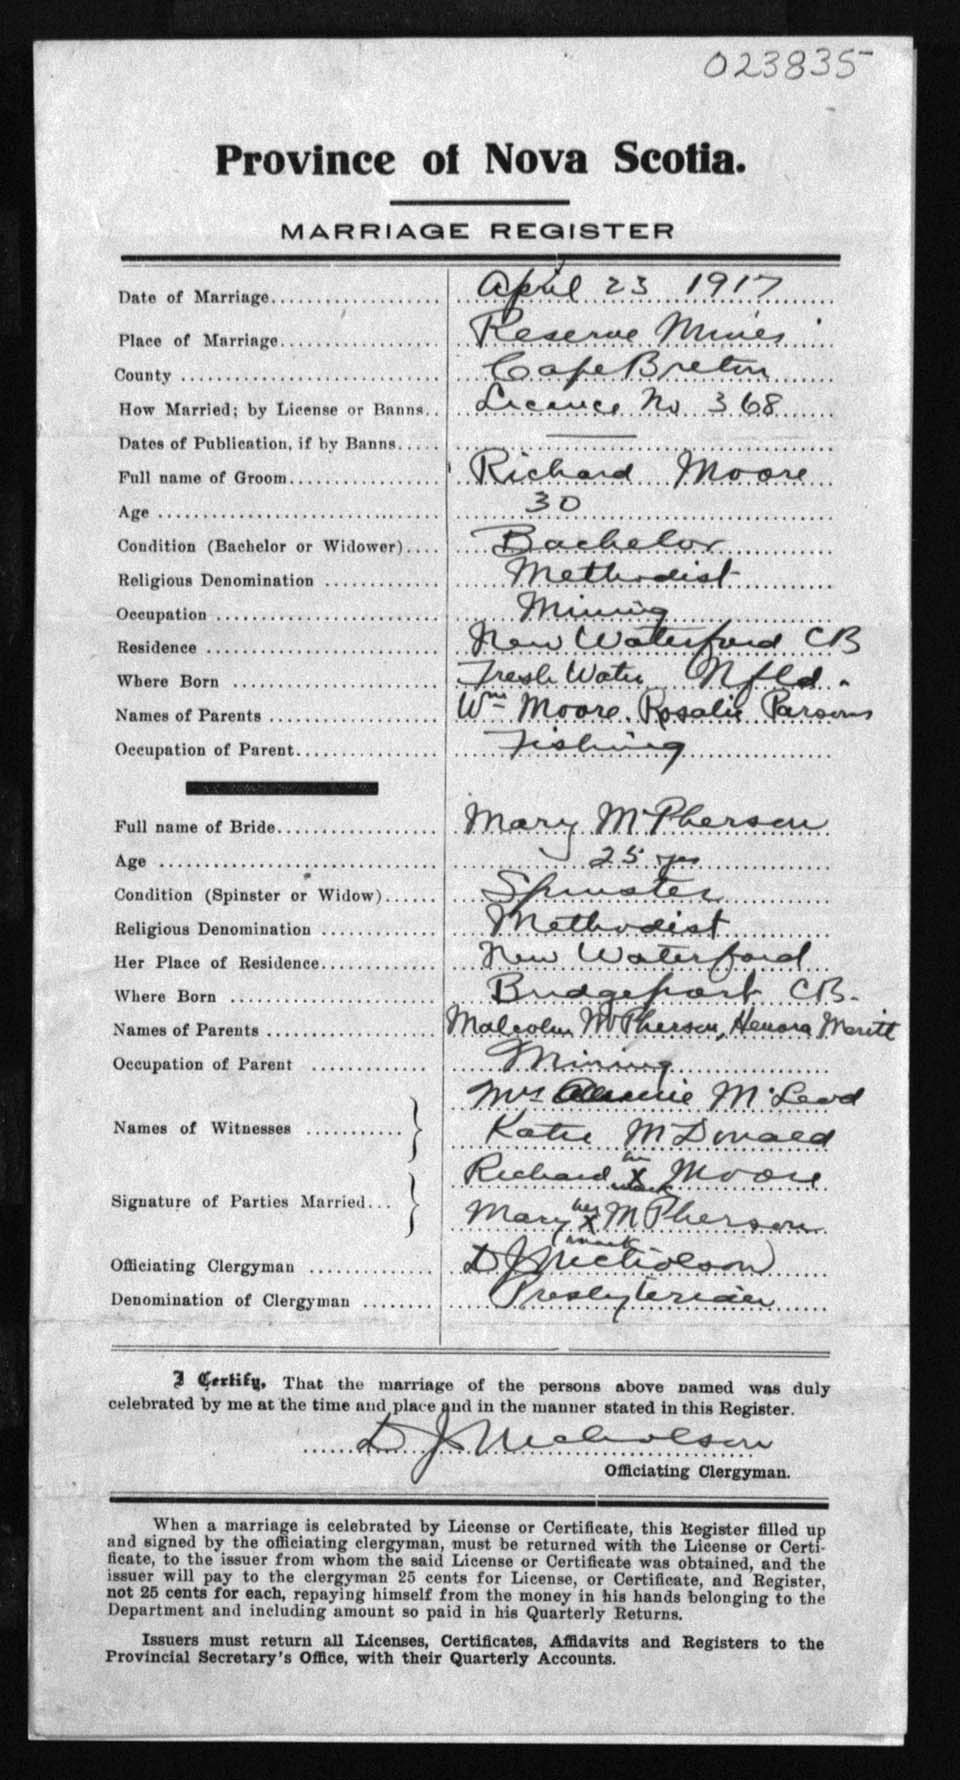 023835
Province of Nova Scotia.
MARRIAGE REGISTER
Date of Marriage................... April 23 1917
Place of Marriage.................. Reserve Mines
County ............................. Cape Breton
How Married; by License or Banns.. Licence No 368
Dates of Publication, if by Banns..... ——
Full name of Groom.................. Richard Moore
Age ................................ 30
Condition (Bachelor or Widower).... Bachelor
Religious Denomination ............. Methodist
Occupation ......................... Mining
Residence .......................... New Waterford CB
Where Born ........................ Fresh Water Nfld.
Names of Parents ................... Wm Moore. Rosalie Parsons
Occupation of Parent................ Fishing
Full name of Bride.................. Mary McPherson
Age ................................ 25 yrs
Condition (Spinster or Widow)...... Spinster
Religious Denomination ............. Methodist
Her Place of Residence............. New Waterford
Where Born ........................ Bridgeport CB.
Names of Parents ................... Malcolm McPherson, Henora Meritt
Occupation of Parent .............. Mining
Names of Witnesses ........... Mrs McLeod
Katie McDonald
Signature of Parties Married... Richard his X mark Moore
Mary her X mark McPherson
Officiating Clergyman .............. D J Nicholson
Denomination of Clergyman ........ Presbyterian
I Certify, That the marriage of the persons above named was duly
celebrated by me at the time and place and in the manner stated in this Register.
D J Nicholson
Officiating Clergyman.
When a marriage is celebrated by License or Certificate, this Register filled up
and signed by the officiating clergyman, must be returned with the License or Certi-
ficate, to the issuer from whom the said License or Certificate was obtained, and the
issuer will pay to the clergyman 25 cents for License, or Certificate, and Register,
not 25 cents for each, repaying himself from the money in his hands belonging to the
Department and including amount so paid in his Quarterly Returns.
Issuers must return all Licenses, Certificates, Affidavits and Registers to the
Provincial Secretary's Office, with their Quarterly Accounts.